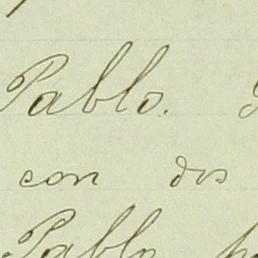 Pablo.
con dos
Pablo